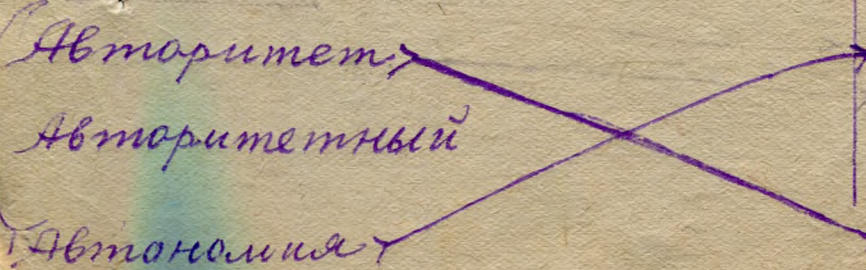 Авторитет
Авторитетный
Автономия